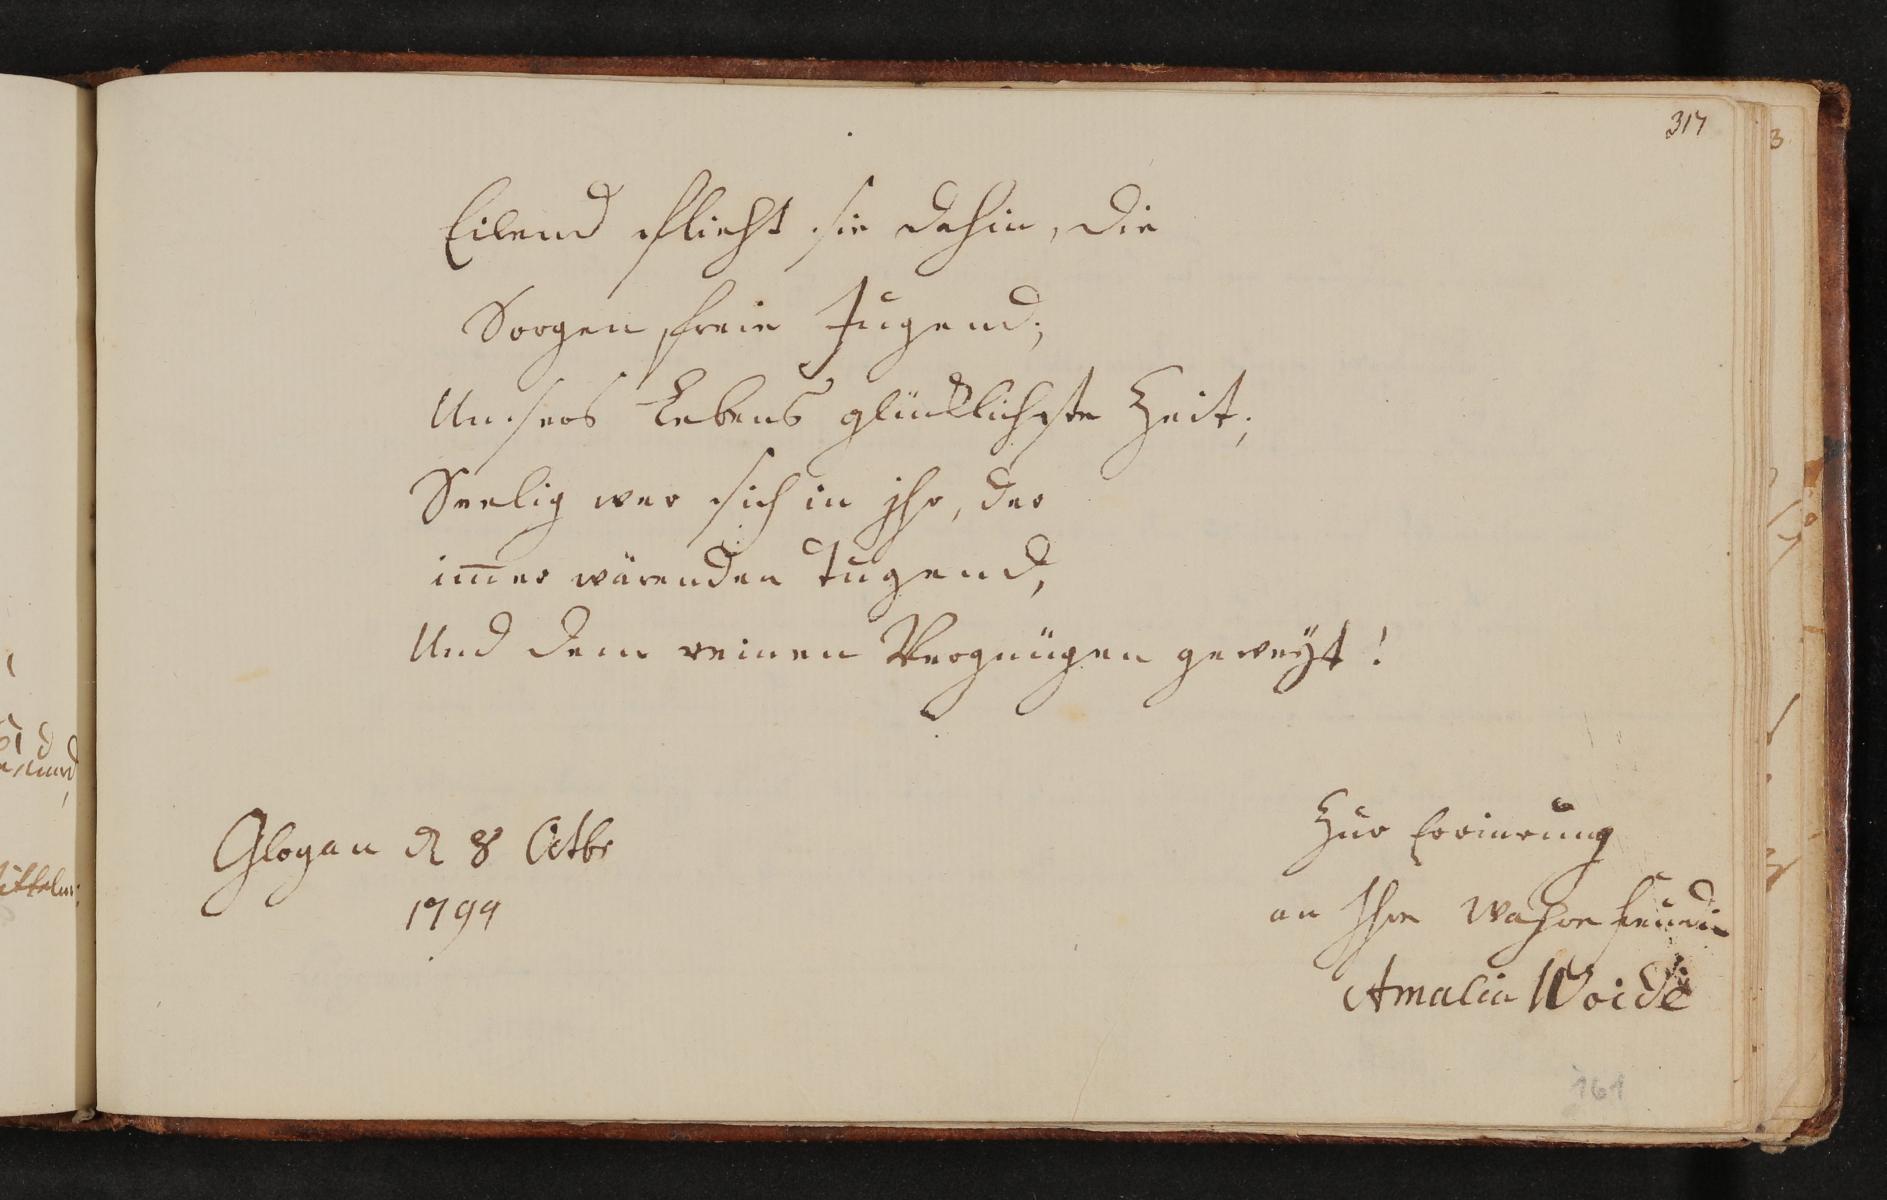 317
Eilend flieht sie dahin, die
Sorgen freie Jugend;
Unsers Lebens glücklichste Zeit;
Seelig wer sich in jhr, der
im̅er wärenden Tugend,
Und dem reinen Vergnügen geweyt!
Glogau d 8 Octbr
1799
Zur Erinrung
an Ihre wahre
Amalia Woide
161